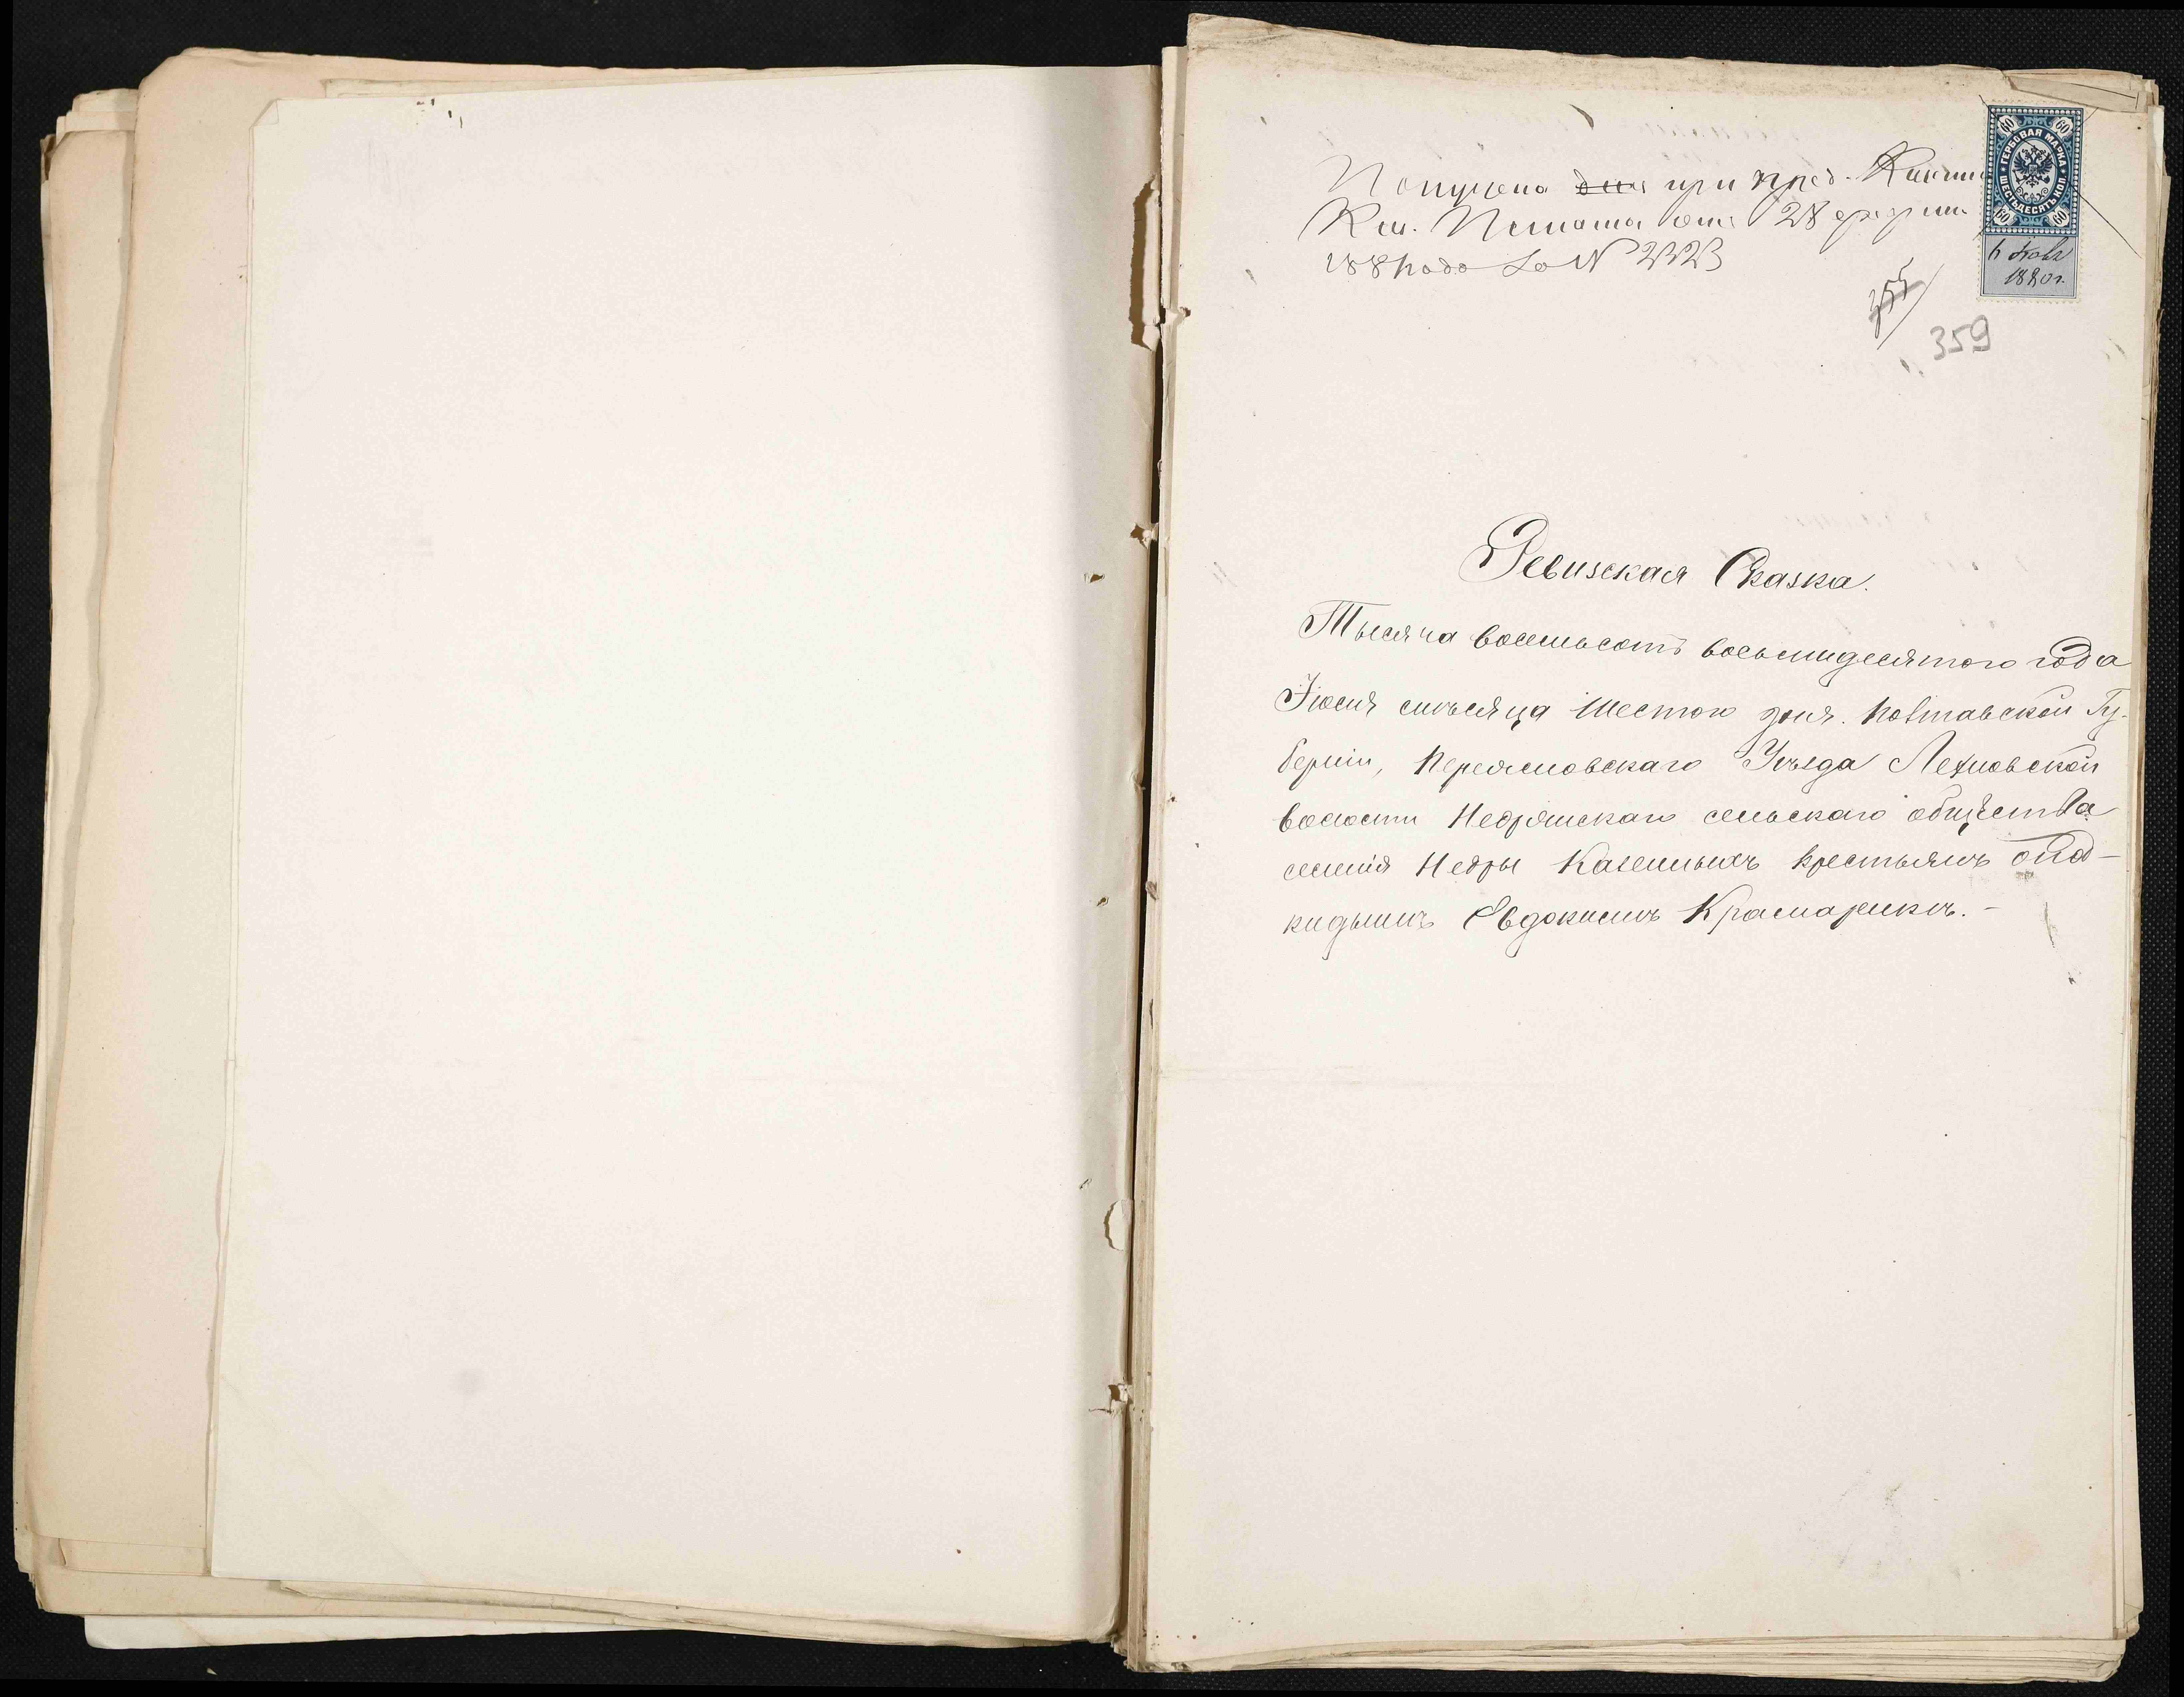 Получена при пред. Киевск.
Каз. Палаты отъ 28 февраля
188 года за N 2223
60 60
ГЕРБОВАЯ МАРКА
ШЕСТЬДЕСЯТЬ КОП.
60 60
6
1880 г.
355
359
Ревизская Сказка.
Тысяча восемьсотъ восьмидесятого года
Іюня мѣсяца шестого дня. Полтавской Гу-
берніи, Переяславскаго Уѣзда Лехновской
волости Недрянскаго сельскаго общества
селенія Недры Казенныхъ крестьянъ
Евдокимъ Крамаренко.-